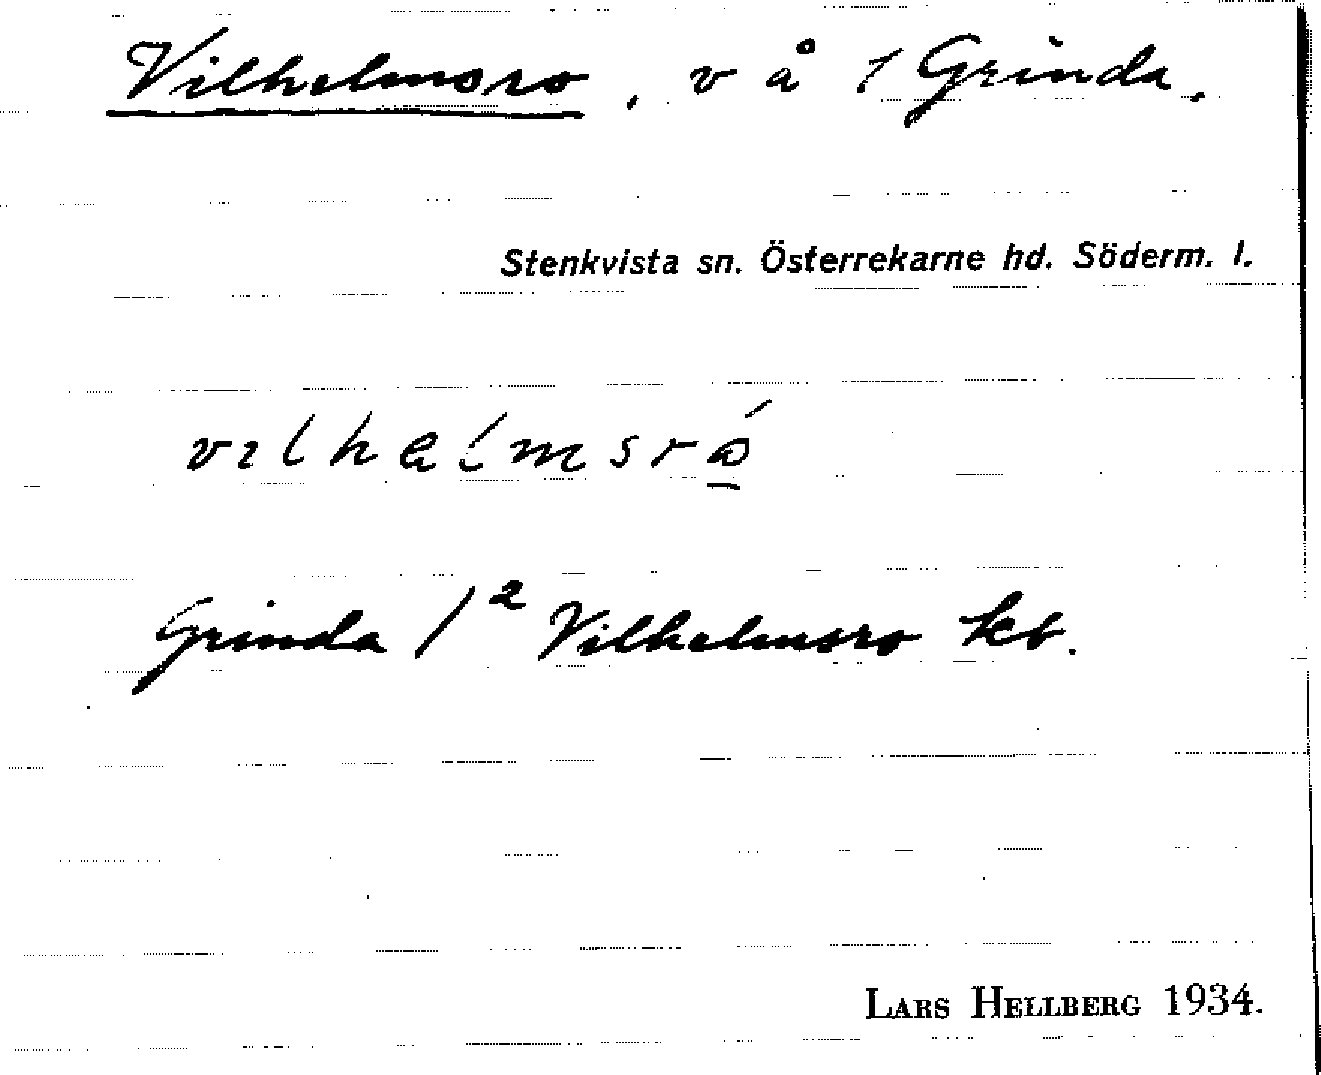 Vilhelmsro, v å 1 Grinda.
Stenkvista sn. Österrekarne hd. Söderm. l.
Grinda 1² Vilhelmsro kb.
LARS HELLBERG 1934.